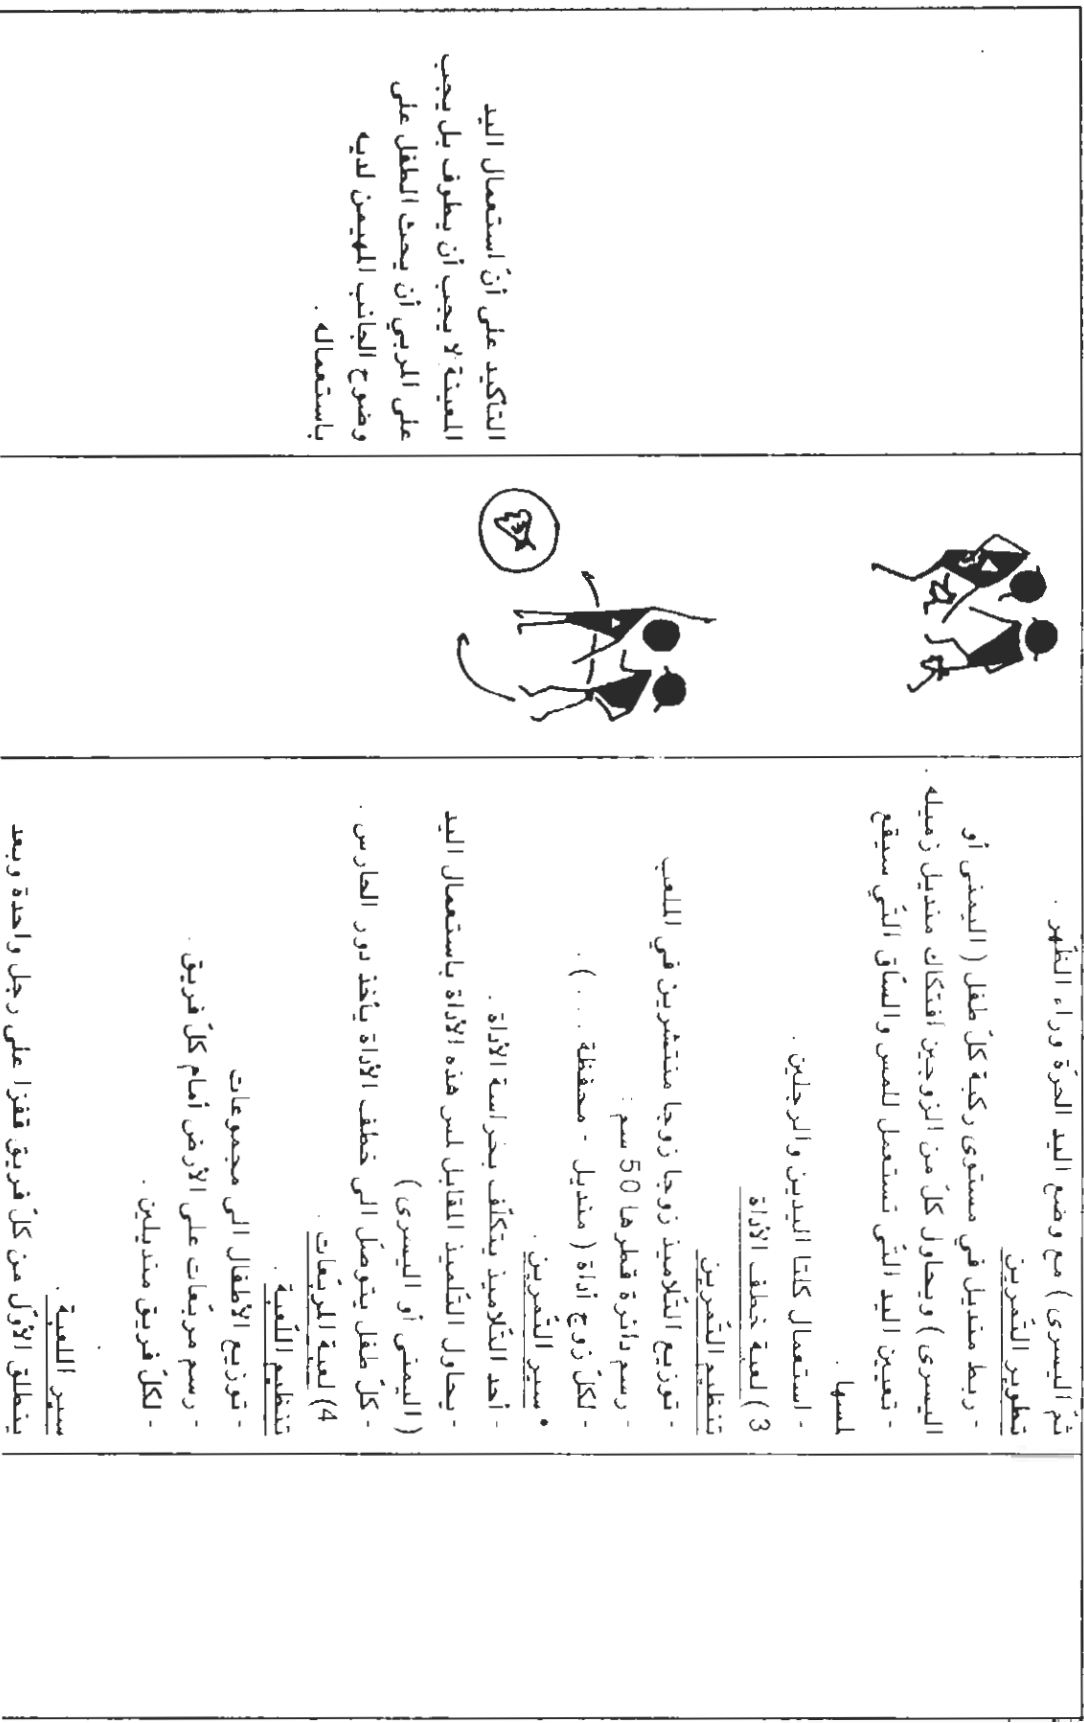 ثمّ اليسرى ) مع وضع اليد الحرّة وراء الظّهر .
تطوير التّمرين
- ربط منديل في مستوى ركبة كلّ طفل ( اليمنى أو
اليسرى ) ويحاول كلّ من الزوجين افتكاك منديل زميله .
- تعيين اليد التّي تستعمل للمس والسّاق التّي سيقع
لمسها .
- استعمال كلتا اليدين والرجلين .
3 ) لعبة خطف الأداة
تنظيم التّمرين
- توزيع التّلاميذ زوجا زوجا منتشرين في الملعب
- رسم دائرة قطرها 50 سم :
- لكلّ زوج أداة ( منديل - محفظة . . . ) .
• سير التّمرين .
- أحد التّلاميذ يتكلّف بحراسة الأداة .
- يحاول التّلميذ المقابل لمس هذه الأداة باستعمال اليد
( اليمنى أو اليسرى )
- كلّ طفل يتوصّل الى خطف الأداة يأخذ دور الحارس .
4) لعبة المربّعات .
تنظيم اللّعبة .
- توزيع الأطفال الى مجموعات
- رسم مربّعات على الأرض أمام كلّ فريق .
- لكلّ فريق منديلين .
سير اللعبة .
ينطلق الأوّل من كلّ فريق قفزا على رجل واحدة وبعد
التأكيد على أنّ استعمال اليد
المعينة لا يجب أن يطرف بل يجب
على المربي أن يحث الطفل على
وضوح الجانب المهيمن لديه
باستعماله .